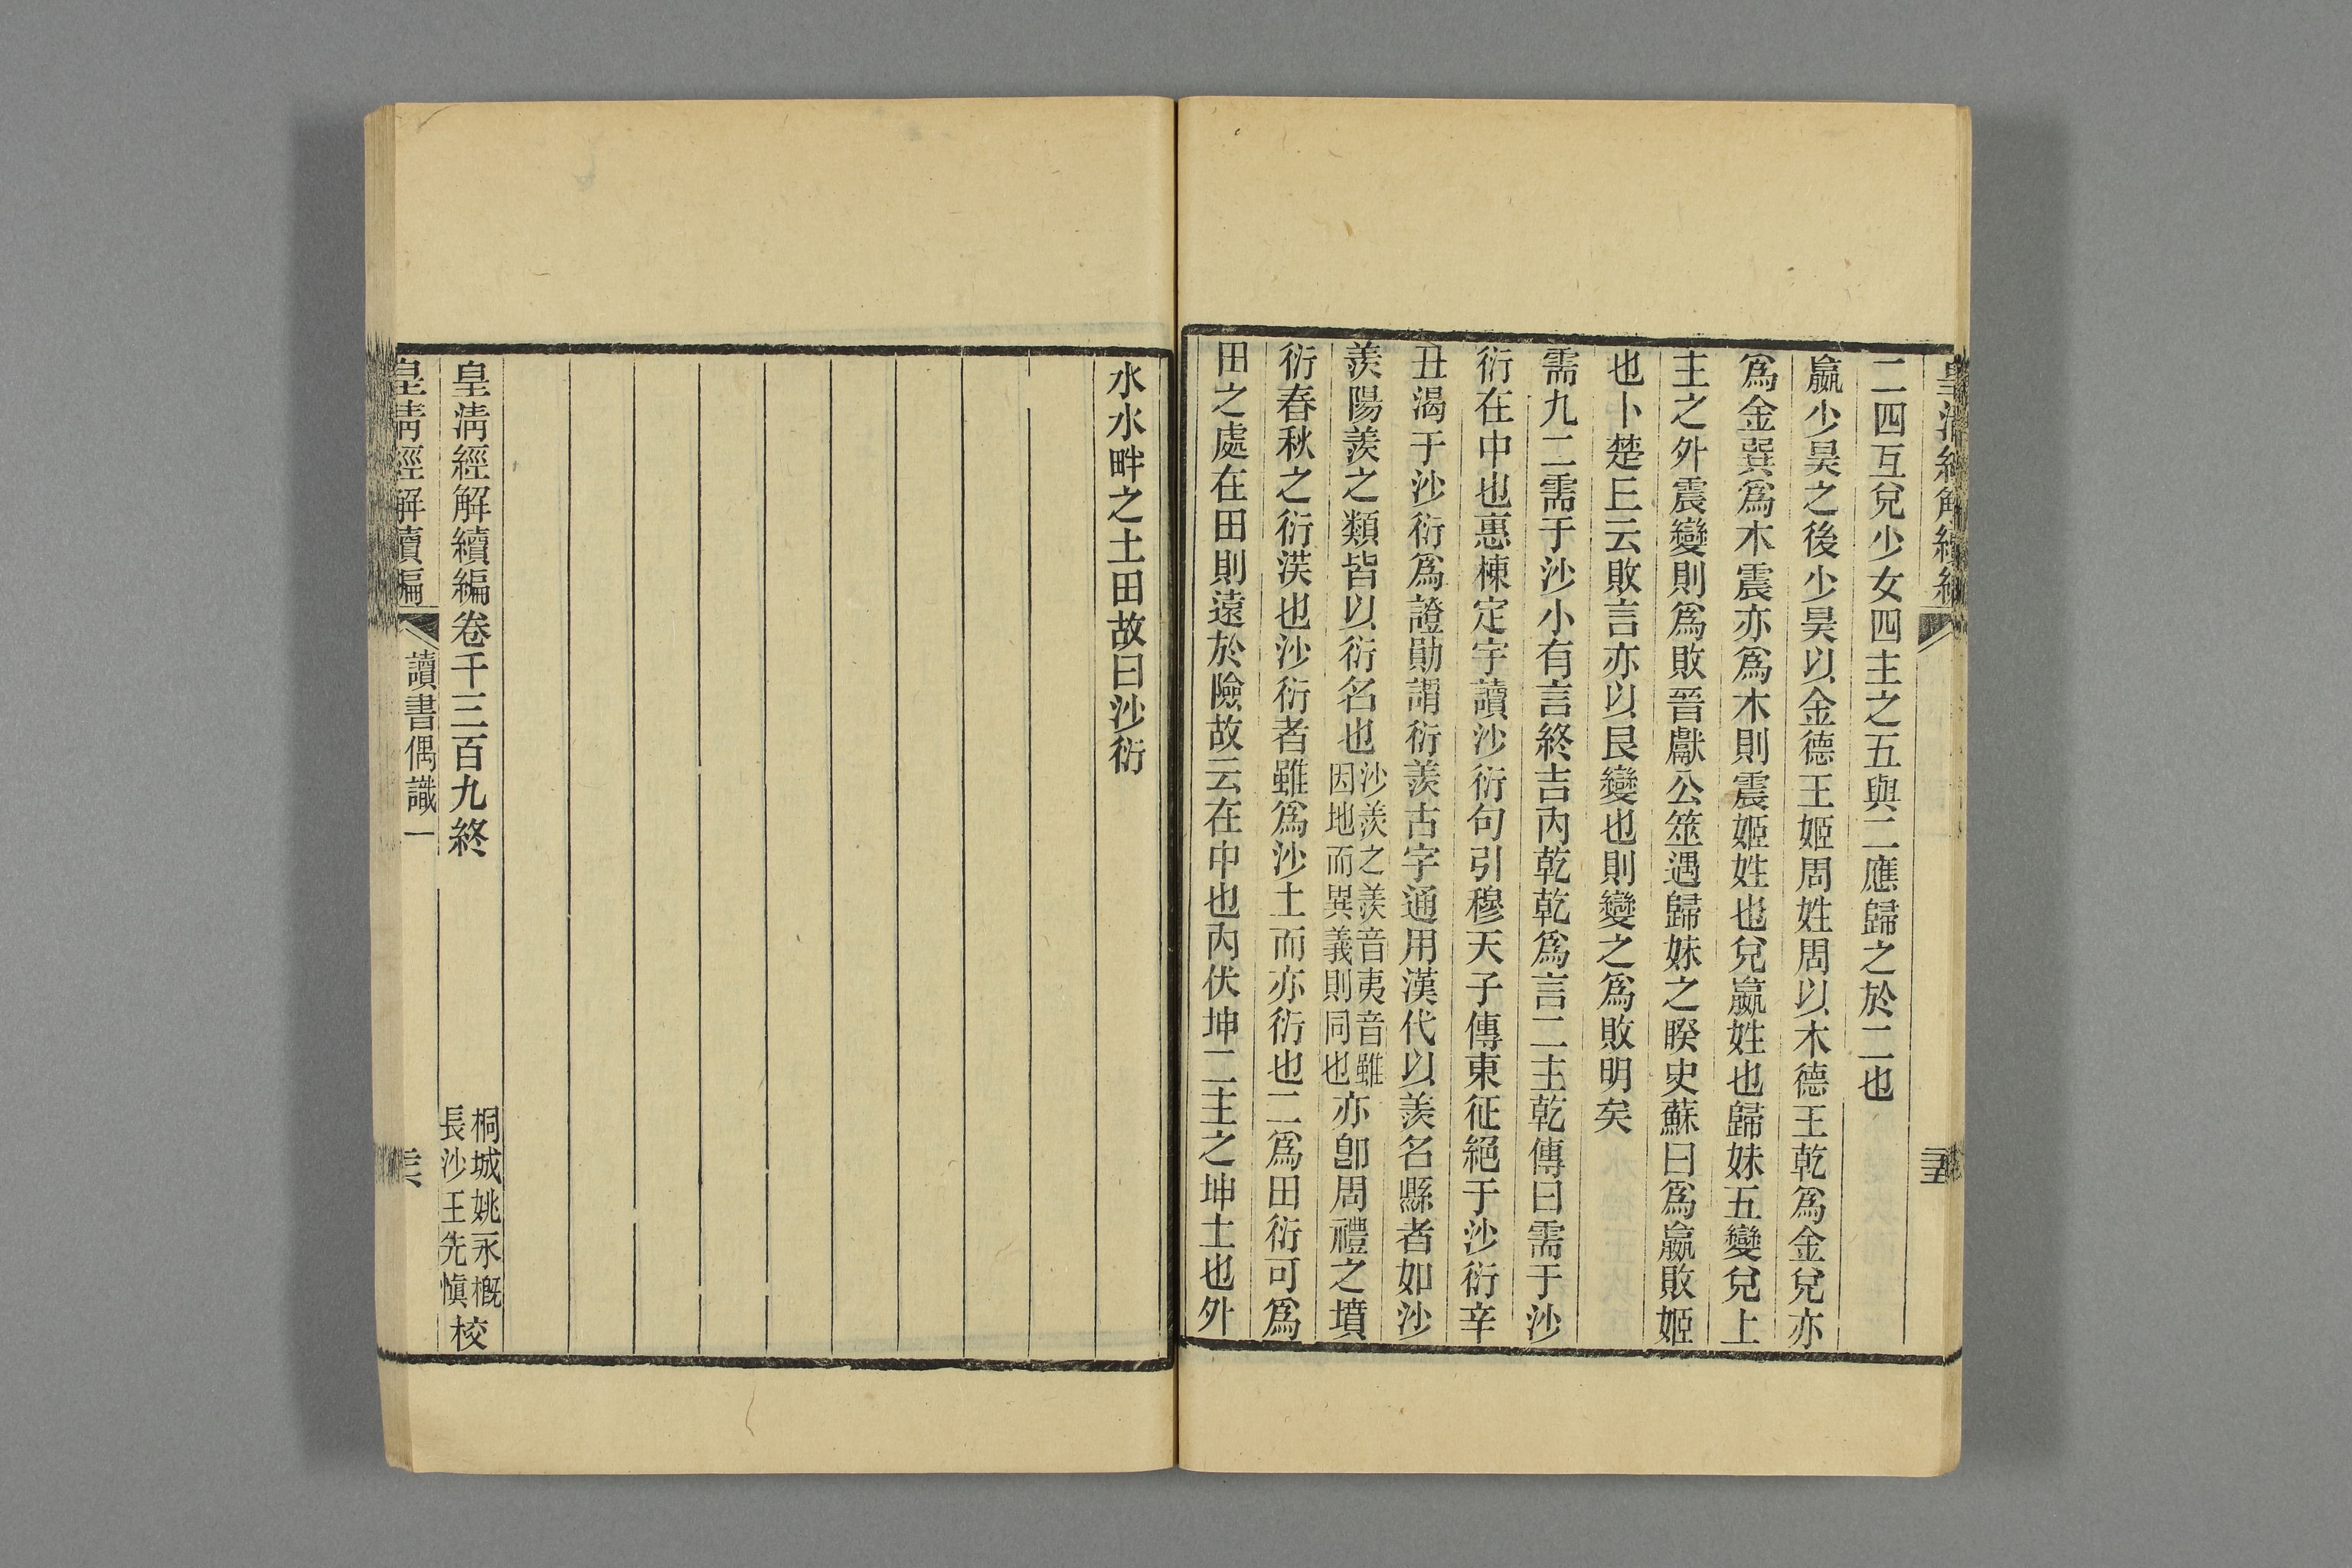 皇清經解續編
三五
二四互兌少女四主之五與二應歸之於二也
嬴少昊之後少昊以金德王姬周姓周以木德王乾爲金兌亦
爲金巽爲木震亦爲木則震姬姓也兌嬴姓也歸妹五變兌上
主之外震變則爲敗晉獻公筮遇歸妹之睽史蘇曰爲嬴敗姬
也卜楚𠀉云敗言亦以艮變也則變之爲敗明矣
需九二需于沙小有言終吉內乾乾爲言二主乾傳曰需于沙
衍在中也惠棟定宇讀沙衍句引穆天子傳東征絕于沙衍辛
丑渴于沙衍爲證勛謂衍羨古字通用漢代以羨名縣者如沙
羨陽羨之類皆以衍名也沙羨之羨音夷音雖因地而異義則同也亦卽周禮之墳
衍春秋之衍渶也沙衍者雖爲沙土而亦衍也二爲田衍可爲
田之處在田則遠於險故云在中也內伏坤二主之坤土也外
水水畔之土田故曰沙衍
皇清經解續編卷千三百九終
桐城姚永概
長沙王先愼校
皇清經解續編
讀書偶識一